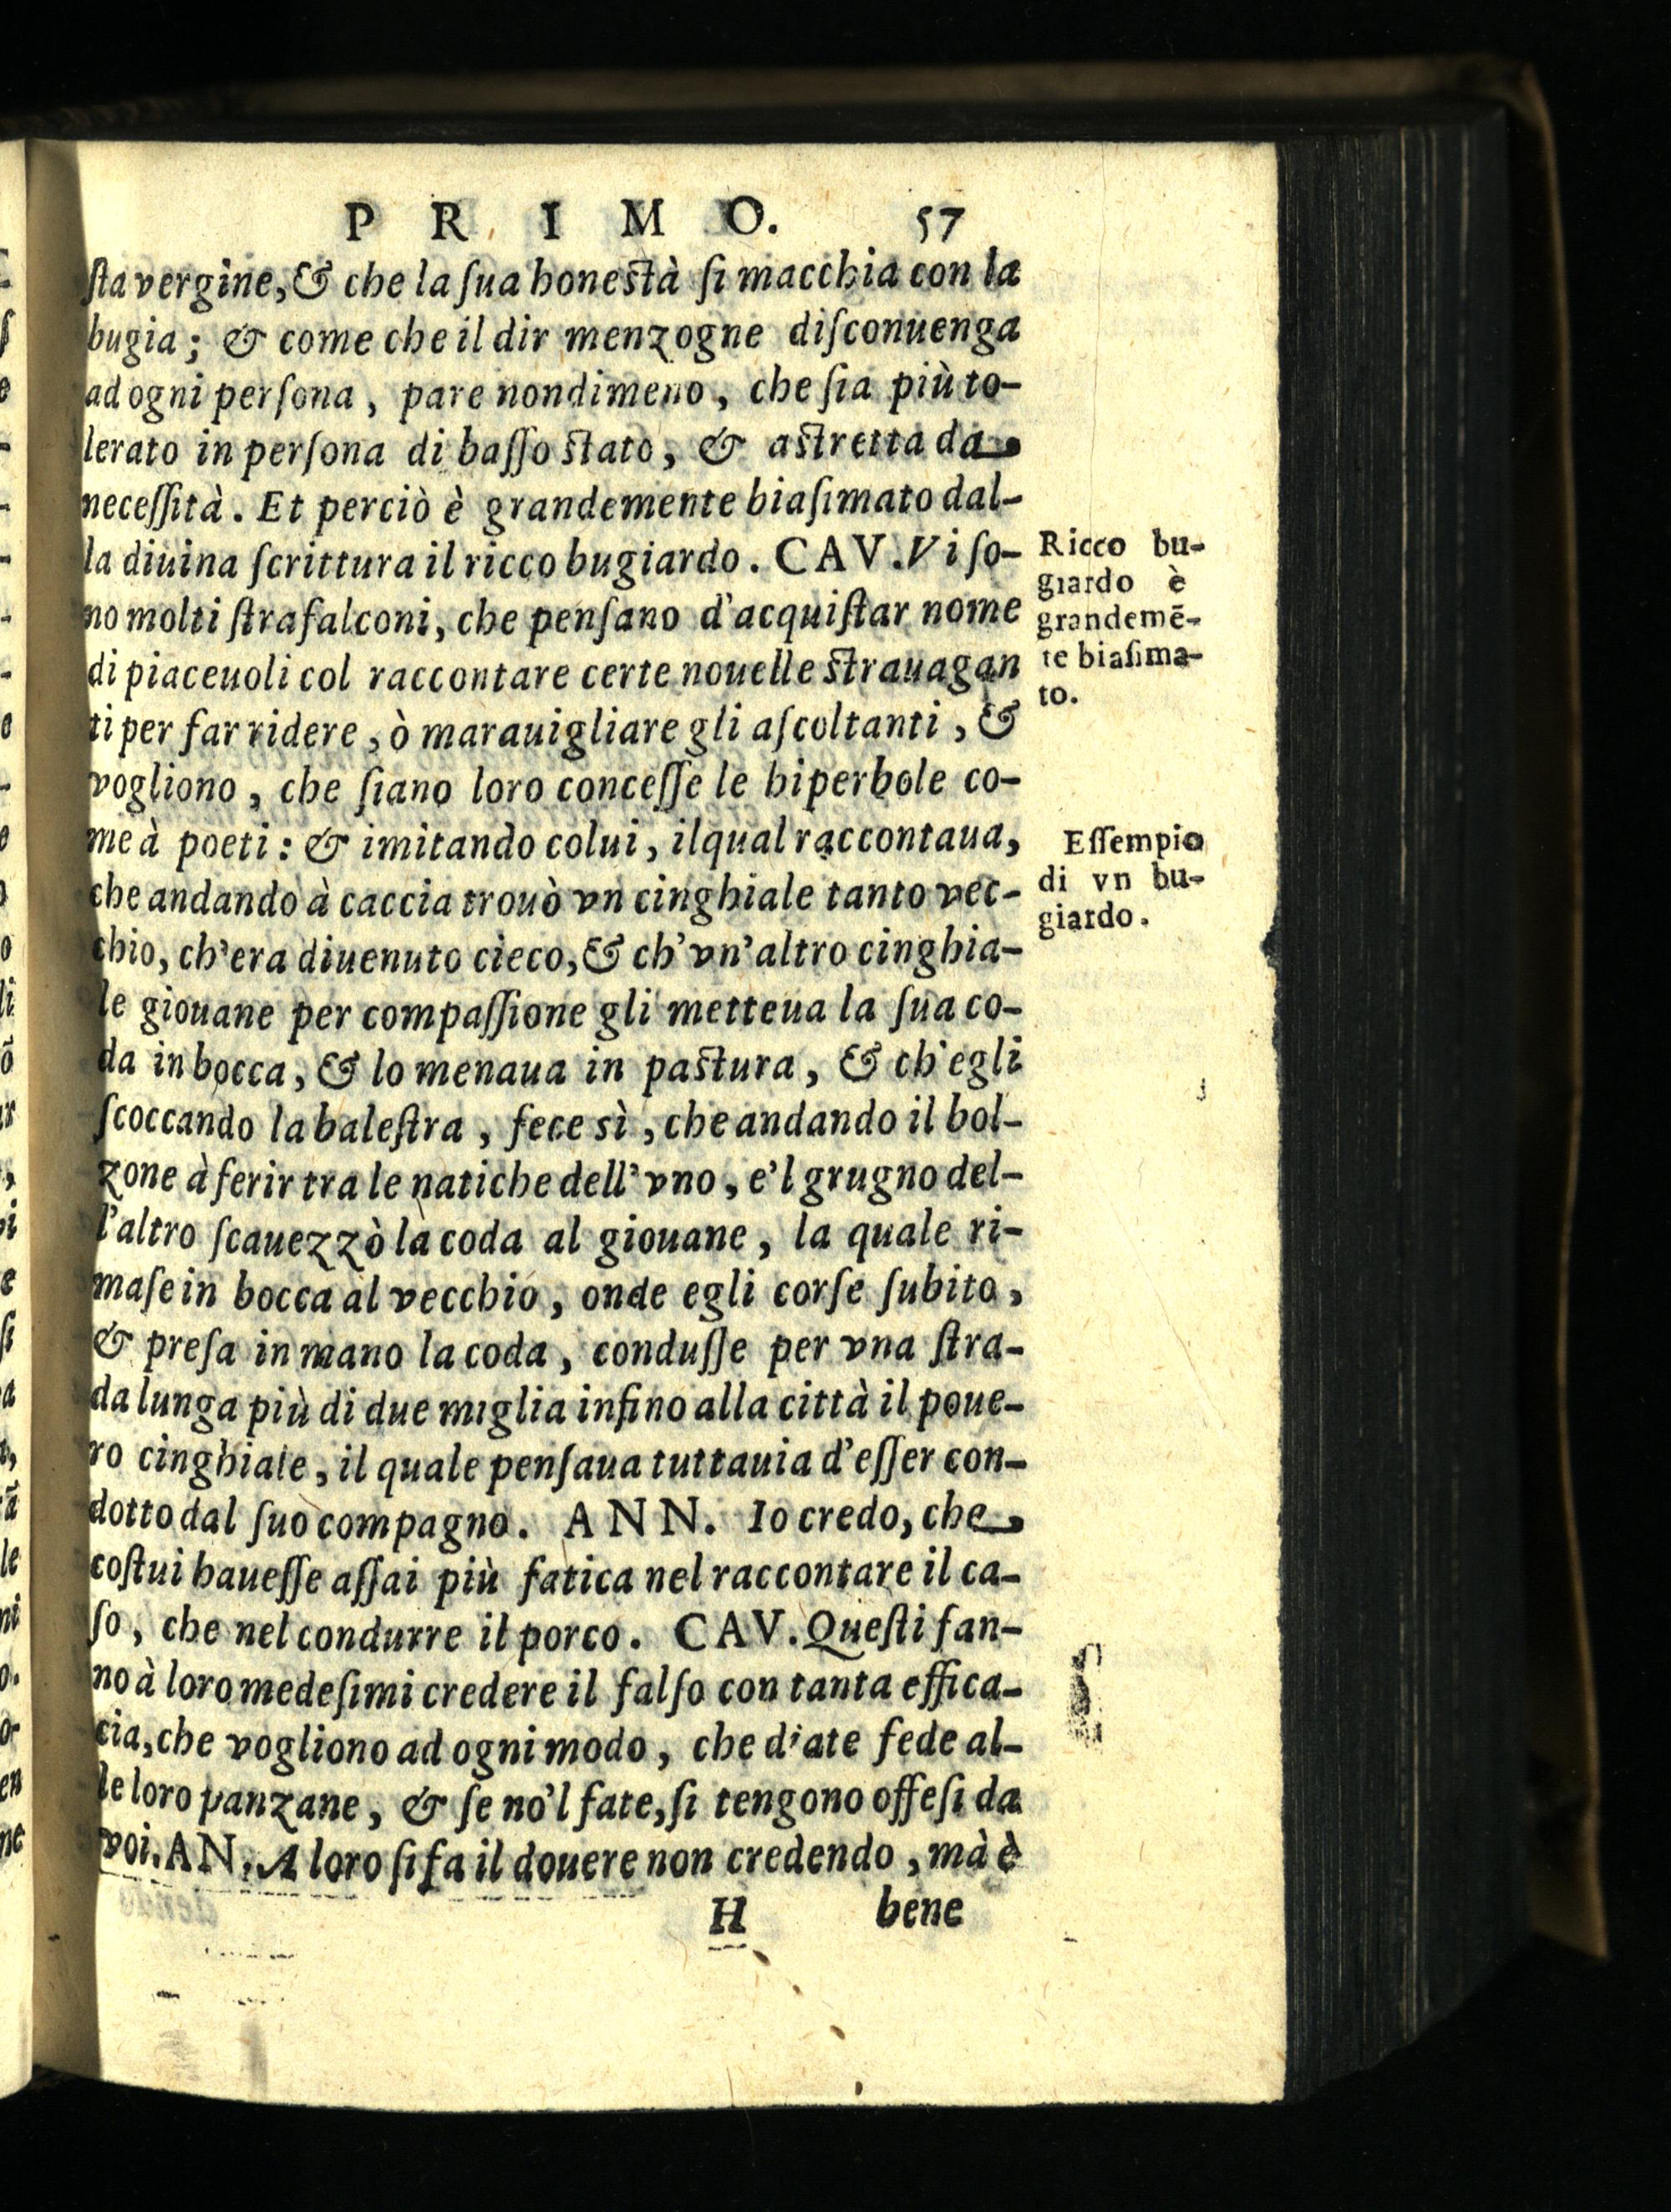 PRIMO. 57
sta vergine, & che la sua honestà si macchia con la
bugia; & come che il dir menzogne disconuenga
ad ogni persona, pare nondimeno, che sia più to-
lerato in persona di basso stato, & astretta da
necessità. Et perciò è grandemente biasimato dal-
la diuina scrittura il ricco bugiardo. CAV. Vi so-
no molti strafalconi, che pensano d'acquistar nome
di piaceuoli col raccontare certe nouelle strauagan
ti per far ridere, ò marauigliare gli ascoltanti, &
vogliono, che siano loro concesse le hiperbole co-
me à poeti: & imitando colui, ilqual raccontaua,
che andando à caccia trouò vn cinghiale tanto vec-
chio, ch'era diuenuto cieco, & ch'vn'altro cinghia-
le giouane per compassione gli metteua la sua co-
da in bocca, & lo menaua in pastura, & ch'egli
scoccando la balestra, fece sì, che andando il bol-
zone à ferir tra le natiche dell'vno, e'l grugno del-
l'altro scauezzò la coda al giouane, la quale ri-
mase in bocca al vecchio, onde egli corse subito,
& presa in mano la coda, condusse per vna stra-
da lunga più di due miglia infino alla città il poue-
ro cinghiale, il quale pensaua tuttauia d'esser con-
dotto dal suo compagno. ANN. Io credo, che
costui hauesse assai più fatica nel raccontare il ca-
so, che nel condurre il porco. CAV. Questi fan-
no à loro medesimi credere il falso con tanta effica-
cia, che vogliono ad ogni modo, che diate fede al-
le loro panzane, & se no'l fate, si tengono offesi da
voi. AN. A loro si fa il douere non credendo, mà è
H bene
Ricco bu-
giardo è
grandemē-
te biasima-
to.
Essempio
di vn bu-
giardo.